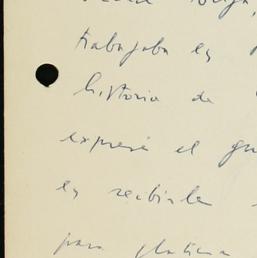 trabajaba en
historia de
expresé el gu
en recibirle
para platicar